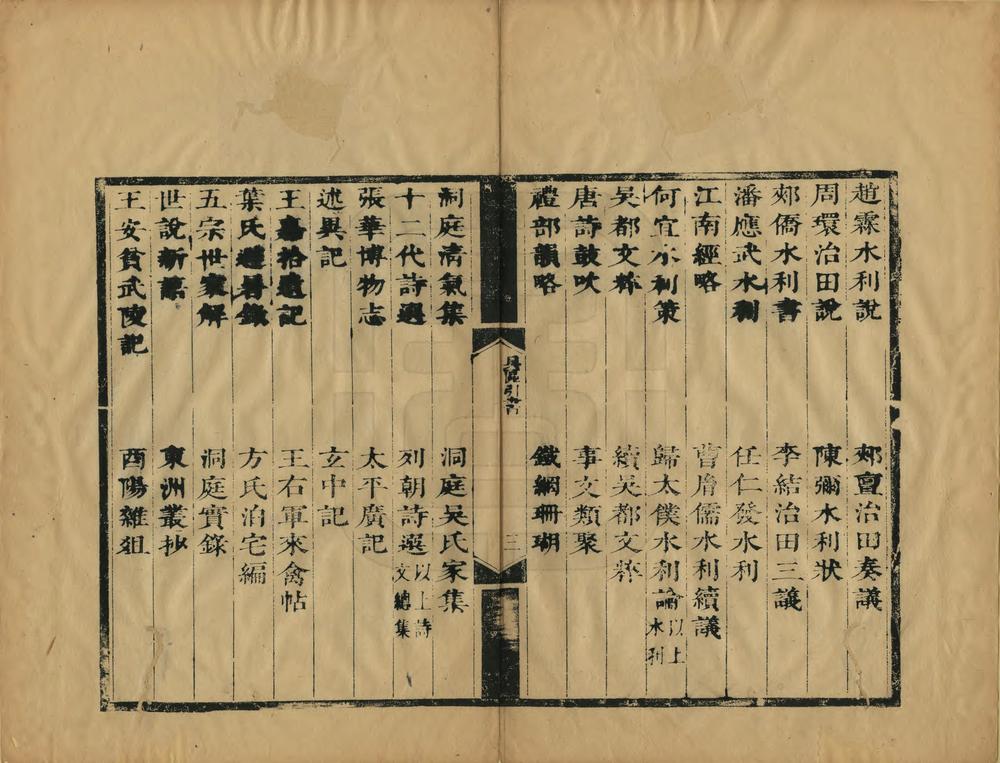 趙霖水利說　郟亶治田奏議
周環治田說　陳彌水利狀
郟僑水利書　李結治田三議
潘應武水利　任仁發水利
江南經略　曹胤儒水利續議
何宜水利策　歸太僕水利論以上水利
吳都文粹　續吳都文粹
唐詩鼓吹　事文類聚
禮部韻略　鐵網珊瑚
具區引書　三
洞庭清氣集　洞庭吳氏家集
十二代詩選　列朝詩選以上詩文總集
張華博物志　太平廣記
述異記　玄中記
王嘉拾遺記　王右軍來禽帖
葉氏避暑錄　方氏泊宅編
五宗世家解　洞庭實錄
世說新語　東洲叢抄
王安貧武陵記　酉陽雜俎